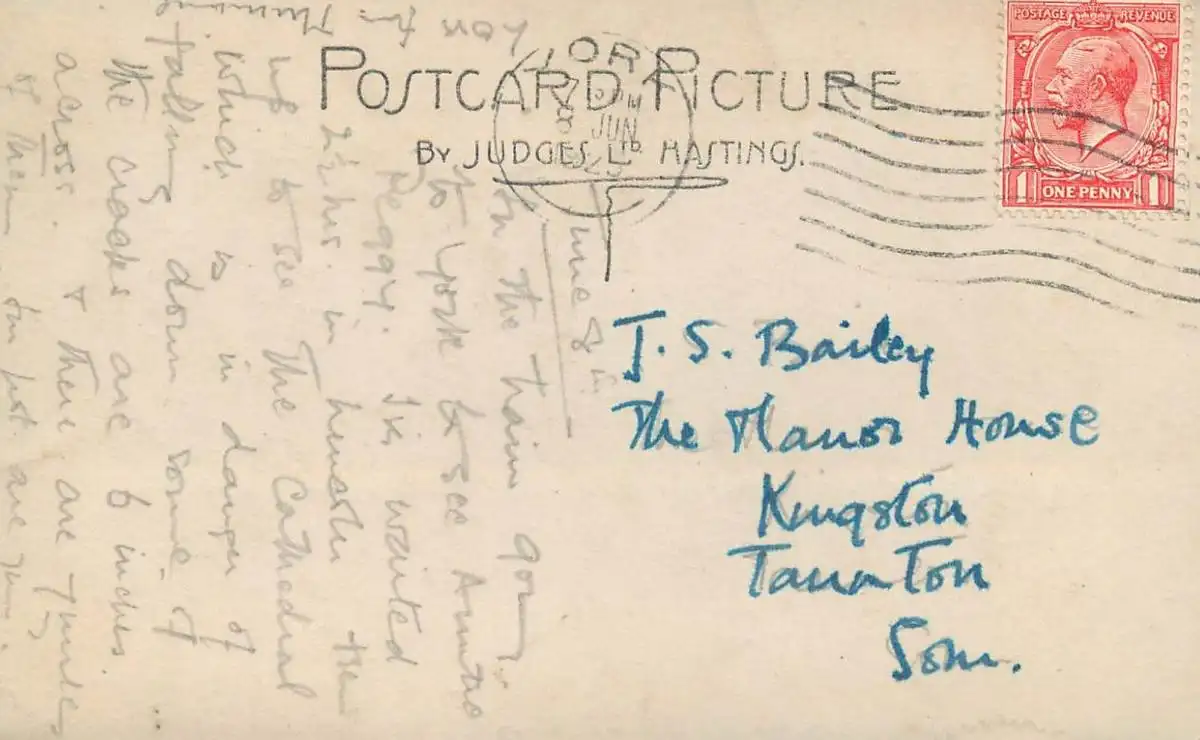 POSTCARD PICTURE
BY JUDGES LTD HASTINGS.
POSTAGE REVENUE
1 ONE PENNY 1
YORK
PM
8 JUN
25
J. S. Bailey
The Manor House
Kingston
Taunton
Som.
June 8th
In the train going
to York to see Auntie
Peggy. I've waited
2½ hrs. in
up to see The Cathedral
which is in danger of
falling down some of
the cracks are 6 inches
across. & there are
of them
are